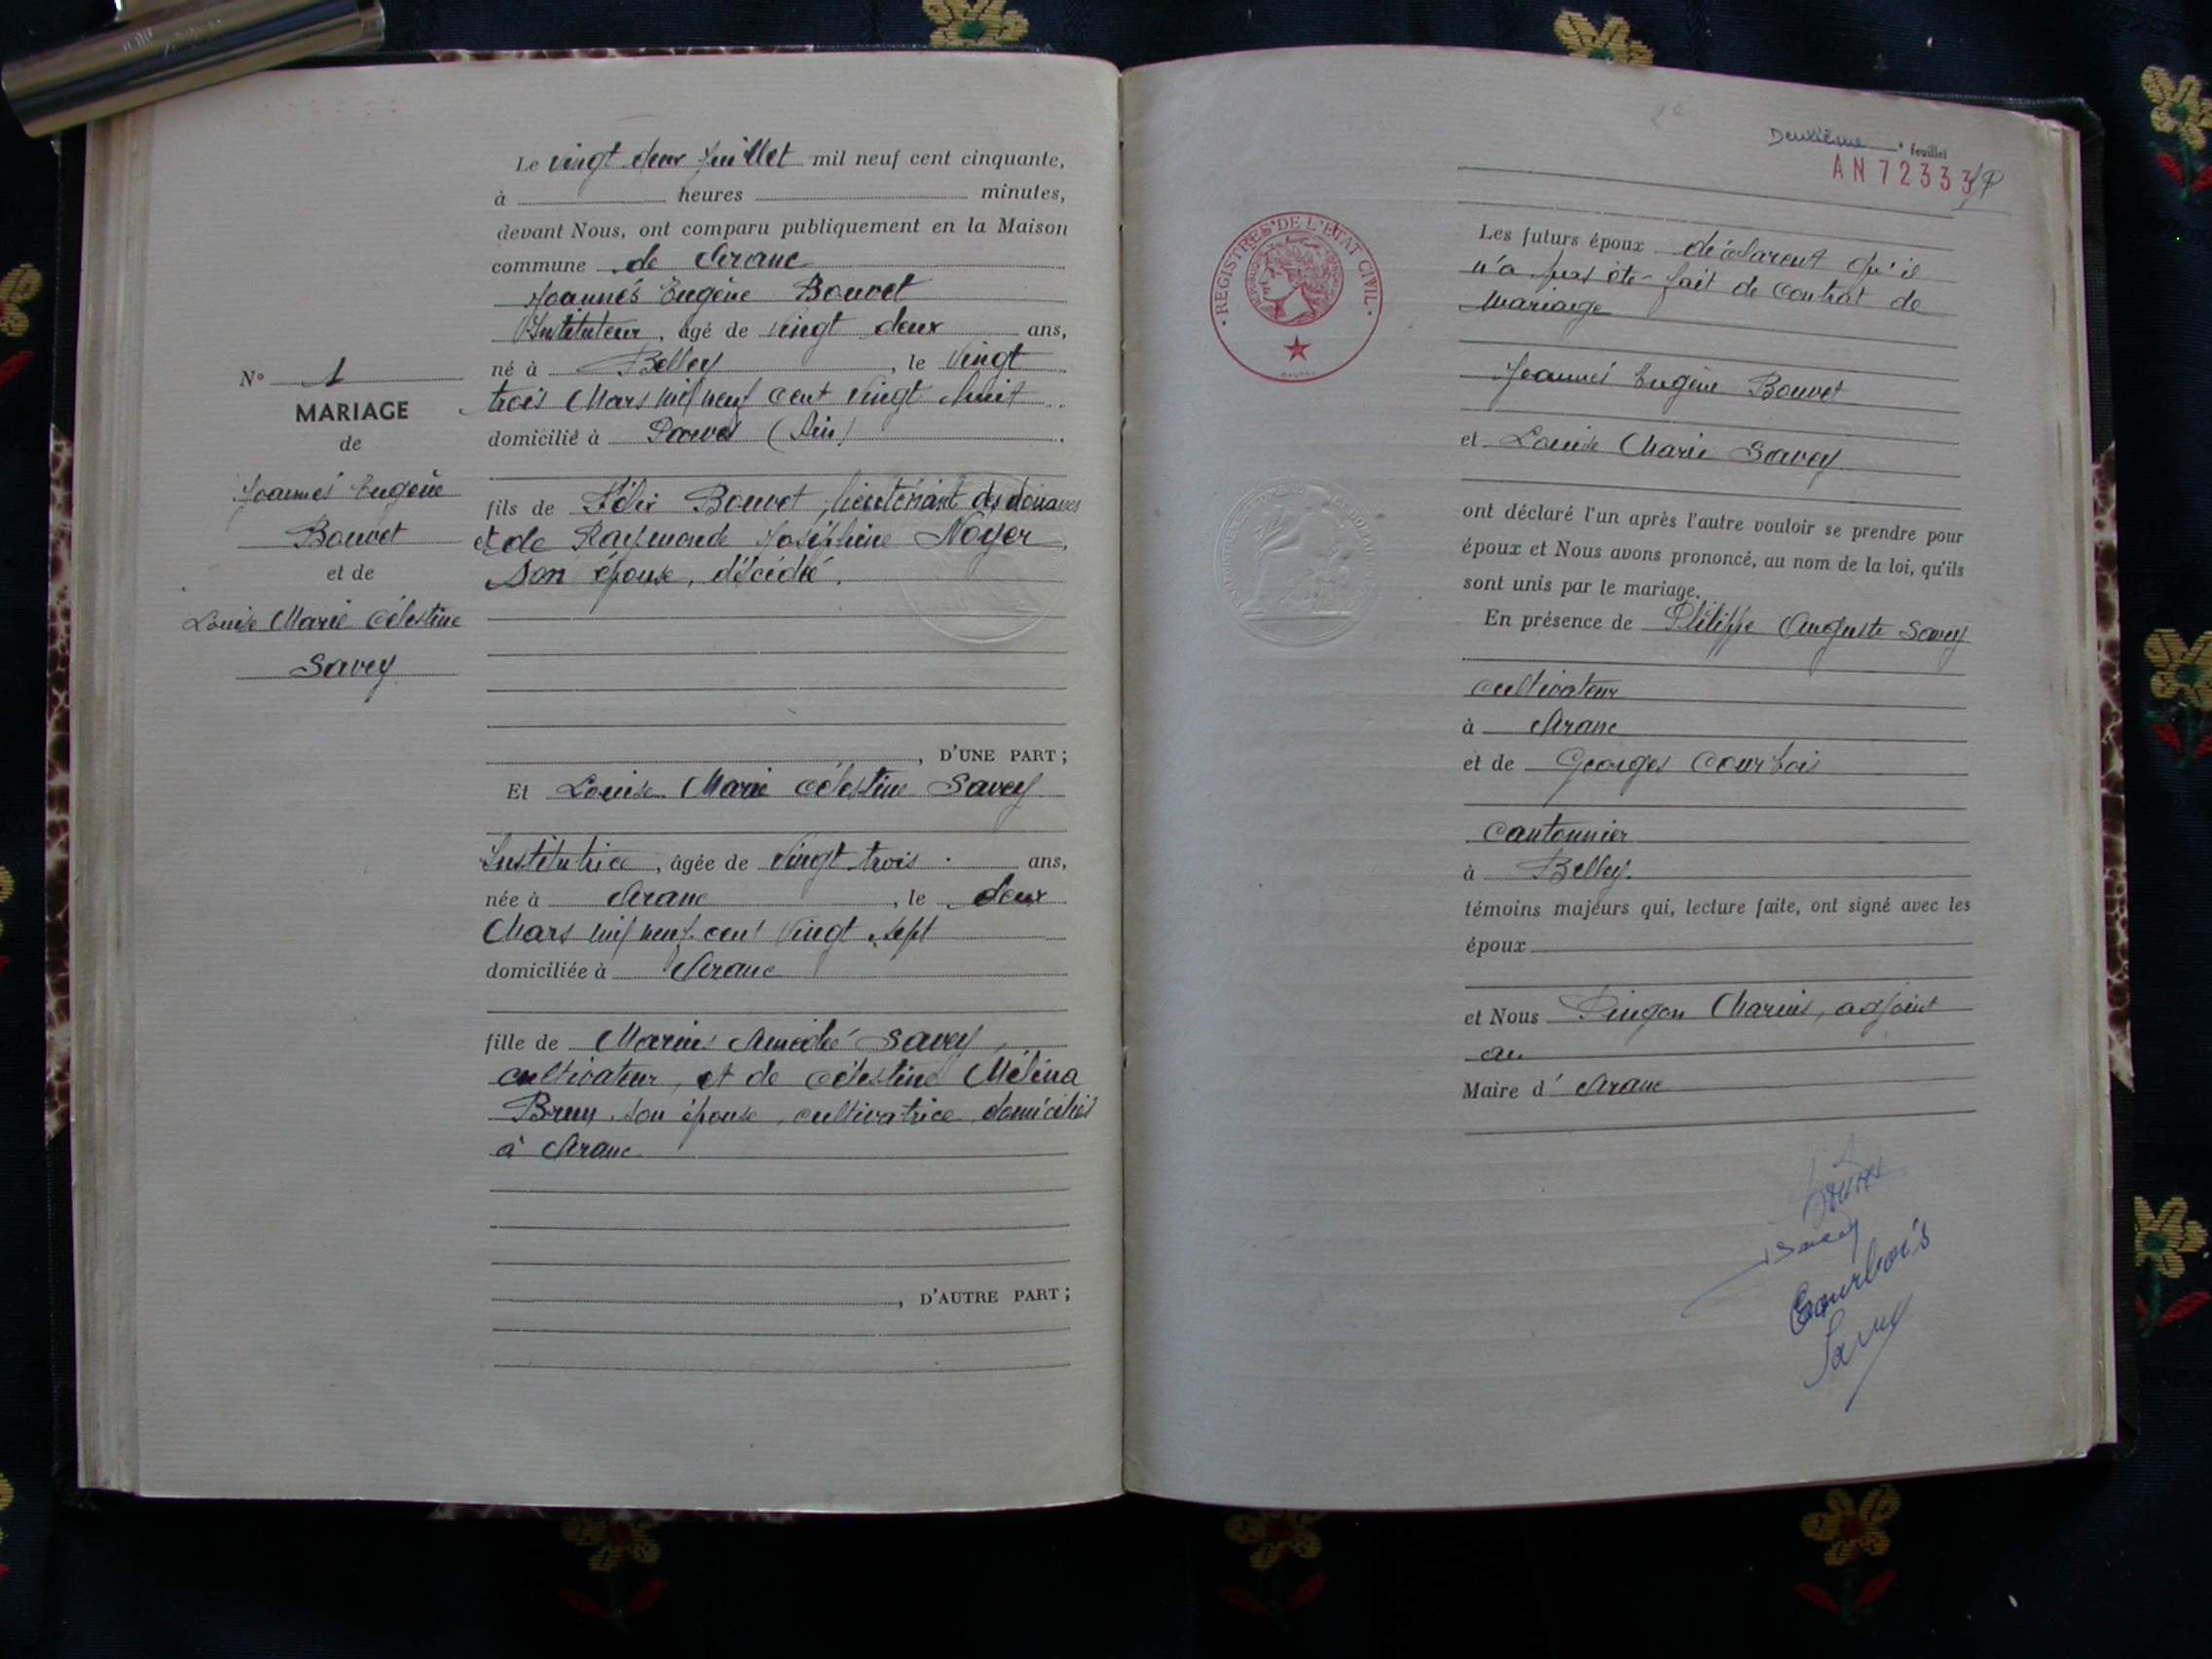 Le vingt deux Juillet mil neuf cent cinquante,
à heures minutes,
devant Nous, ont comparu publiquement en la Maison
commune de Aranc
Joannès Eugène Bouvet
Instituteur, âgé de vingt deux ans,
né à Belley, le vingt
trois Mars mil neuf cent vingt huit
domicilié à Parves (Ain)
fils de Félix Bouvet, lieutenant des douanes
et de Raymonde Joséphine Noyer,
son épouse, décédée.
D'UNE PART;
Et Louise Marie Célestine Savey
Institutrice, âgée de vingt trois ans,
née à Aranc, le deux
Mars mil neuf cent vingt sept
domiciliée à Aranc
fille de Marius Amédée Savey,
cultivateur, et de Célestine Mélina
Brun son épouse, cultivatrice, domiciliés
à Aranc
D'AUTRE PART;
N° 1
MARIAGE
de
Joannès Eugène
Bouvet
et de
Louise Marie Célestine
Savey
Deuxième feuillet
AN 72333
REGISTRES DE L'ÉTAT CIVIL
Les futurs époux déclarent qu'il
n'a pas été fait de contrat de
mariage
Joannès Eugène Bouvet
et Louise Marie Savey
ont déclaré l'un après l'autre vouloir se prendre pour
époux et Nous avons prononcé, au nom de la loi, qu'ils
sont unis par le mariage.
En présence de Philippe Auguste Savey
cultivateur
à Aranc
et de Georges Courbois
cantonnier
à Belley.
témoins majeurs qui, lecture faite, ont signé avec les
époux
et Nous Pingon Marius, adjoint
au
Maire d' Aranc
Savey
Courbois
Savey